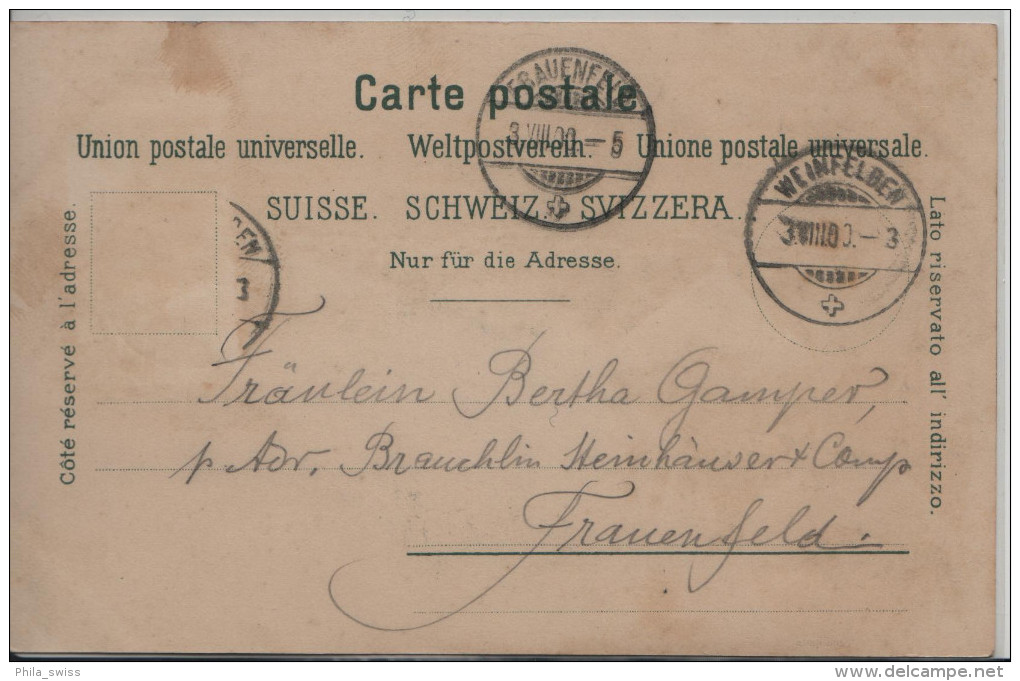 Carte postale
Union postale universelle. Weltpostverein. Unione postale universale.
SUISSE. SCHWEIZ. SVIZZERA.
Nur für die Adresse.
Côté réservé à l'adresse.
Lato riservato all' indirizzo.
3.VIII.00.–5
WEINFELDEN
3.VIII.00.–3
3
Fräulein Bertha Gamper,
p Adr. Brauchlin Steinhäuser & Comp
Frauenfeld.
Phila_swiss
www.delcampe.net